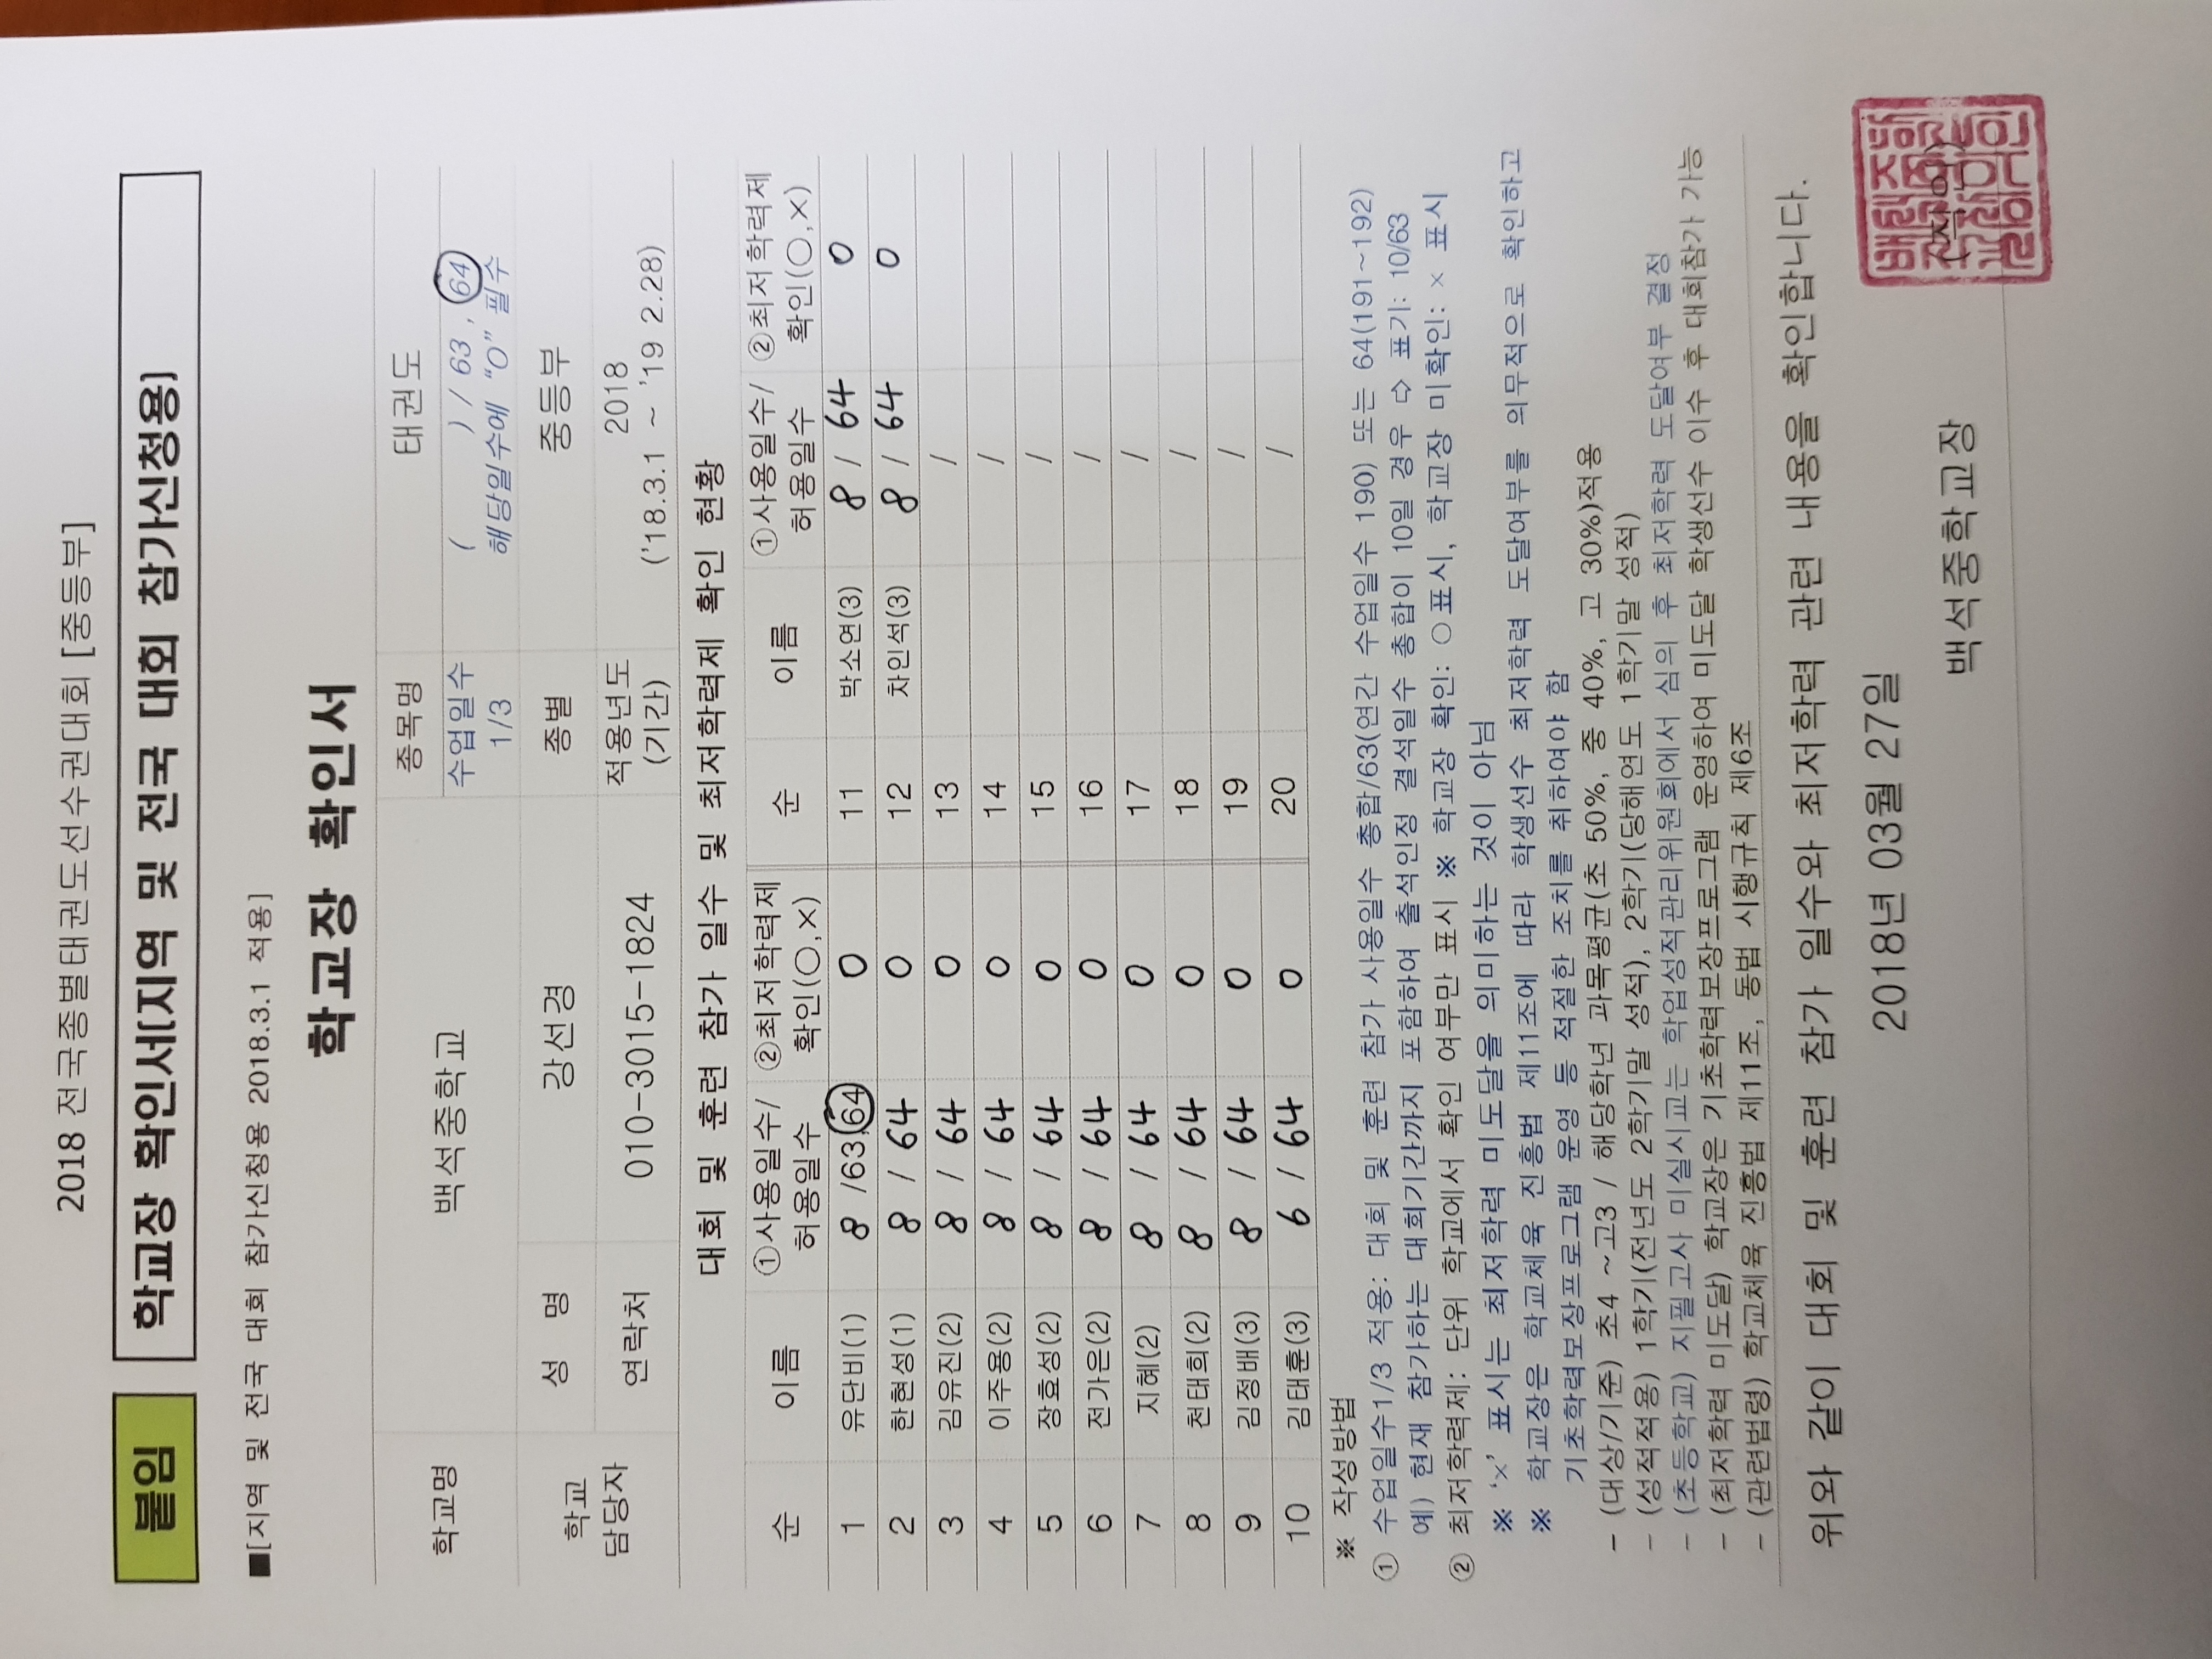 2018 전국종별태권도선수권대회 [중등부]
붙임 학교장 확인서[지역 및 전국 대회 참가신청용]
■[지역 및 전국 대회 참가신청용 2018.3.1 적용]
학교장 확인서
학교명 백석중학교 종목명 태권도
수업일수 1/3 ( ) / 63 , 64 해당일수에 "O" 필수
학교 담당자 성 명 강선경 종별 중등부
연락처 010-3015-1824 적용년도 (기간) 2018 ('18.3.1 ~ '19 2.28)
대회 및 훈련 참가 일수 및 최저학력제 확인 현황
순 이름 ①사용일수/허용일수 ②최저학력제 확인(○,×) 순 이름 ①사용일수/허용일수 ②최저학력제 확인(○,×)
1 유단비(1) 8 /63,64 O 11 박소연(3) 8 / 64 O
2 한현성(1) 8 / 64 O 12 차인석(3) 8 / 64 O
3 김유진(2) 8 / 64 O 13 /
4 이주용(2) 8 / 64 O 14 /
5 장효성(2) 8 / 64 O 15 /
6 전가은(2) 8 / 64 O 16 /
7 지혜(2) 8 / 64 O 17 /
8 천태희(2) 8 / 64 O 18 /
9 김정배(3) 8 / 64 O 19 /
10 김태훈(3) 6 / 64 O 20 /
※ 작성방법
① 수업일수1/3 적용: 대회 및 훈련 참가 사용일수 총합/63(연간 수업일수 190) 또는 64(191~192)
예) 현재 참가하는 대회기간까지 포함하여 출석인정 결석일수 총합이 10일 경우 ⇨ 표기: 10/63
② 최저학력제: 단위 학교에서 확인 여부만 표시 ※ 학교장 확인: ○ 표시, 학교장 미확인: × 표시
※ '×' 표시는 최저학력 미도달을 의미하는 것이 아님
※ 학교장은 학교체육 진흥법 제11조에 따라 학생선수 최저학력 도달여부를 의무적으로 확인하고
기초학력보장프로그램 운영 등 적절한 조치를 취하여야 함
- (대상/기준) 초4 ~고3 / 해당학년 과목평균(초 50%, 중 40%, 고 30%)적용
- (성적적용) 1학기(전년도 2학기말 성적), 2학기(당해연도 1학기말 성적)
- (초등학교) 지필고사 미실시교는 학업성적관리위원회에서 심의 후 최저학력 도달여부 결정
- (최저학력 미도달) 학교장은 기초학력보장프로그램 운영하여 미도달 학생선수 이수 후 대회참가 가능
- (관련법령) 학교체육 진흥법 제11조, 동법 시행규칙 제6조
위와 같이 대회 및 훈련 참가 일수와 최저학력 관련 내용을 확인합니다.
2018년 03월 27일
백석중학교장 (직인)